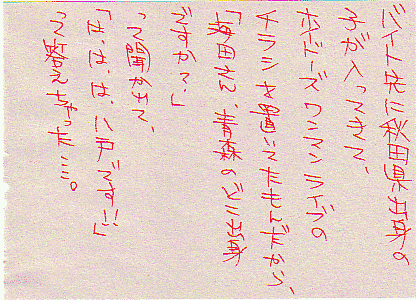 バイト先に秋田県出身の
子が入ってきて、
ホイドーズワンマンライブの
チラシを置いてたもんだから、
「海田さん、青森のどこ出身
ですかて？」
って聞かれて、
「は、は、は、ハデです!!」
って答えちゃった…。